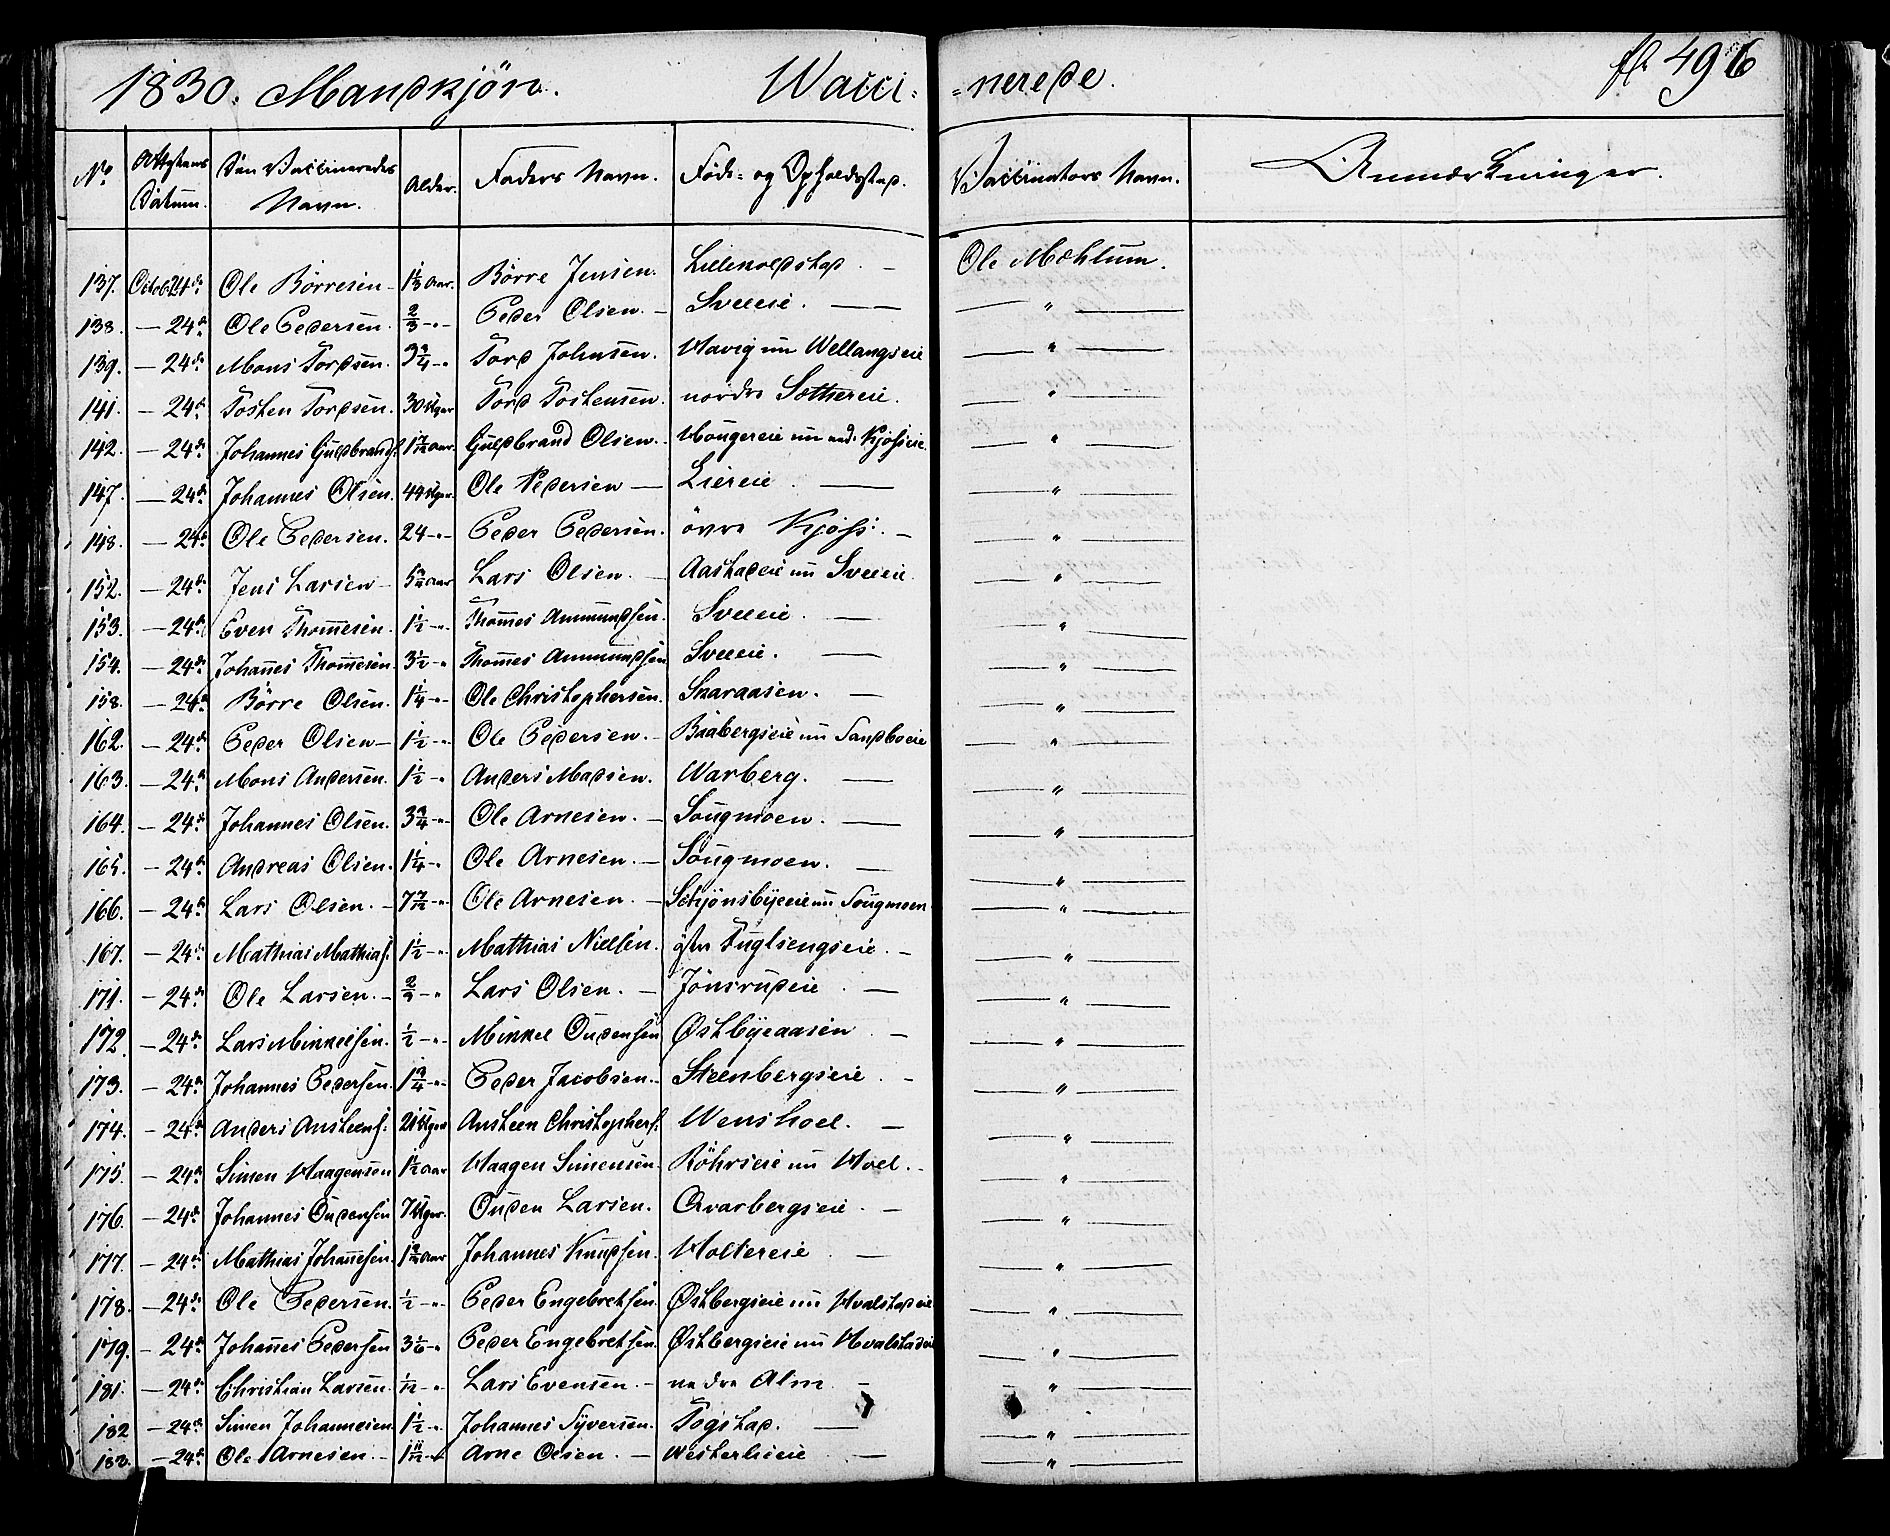 1830. Mandkjön. Wacci-
=nerede. fl. 496
No. Attestens Datum. Den Vaccineredes Navn. Alder. Faders Navn. Føde- og Opholdsstad. Vaccinators Navn. Anmærkninger.
137. Octob. 24de Ole Börresen - 1⅓ Aar. Börre Jensen. Lillekolstad. - Ole Mæhlum.
138. - 24de Ole Pedersen. ⅔ -"- Peder Olsen. - Sveeie. - - " -
139. - 24de Mons Tordsen. 3¾ -"- Tord Johnsen. Havig un Wellangseie - " -
141. - 24de Tosten Tordsen. 30 Uger Tord Tostensen. nordre Sottereie. - " -
142. - 24de Johannes Guldbrands. 1 7/12 Aar. Guldbrand Olsen. Hougereie un ned. Kjosseie. - " -
147. - 24de Johannes Olsen. 44 Uger. Ole Pedersen - Liereie - - " -
148. - 24de Ole Pedersen. 24 -"- Peder Pedersen. övre Kjoss. - - " -
152. - 24de Jens Larsen - Aar Lars Olsen. - Aastadeie un Sveeie. - " -
153. - 24de Even Thomesen. 1½ -"- Thomes Ammundsen. Sveeie. - - " -
154. - 24de Johanes Thomesen. 3½ -"- Thomes Ammundsen Sveeie. - - " -
158. - 24de Börre Olsen. 1¼ -"- Ole Christophersen. Snaraasen. - - " -
162. - 24de Peder Olsen - 1½ -"- Ole Pedersen. - Baabergseie un Sandboeie - " -
163. - 24de Mons Andersen. 1½ -"- Anders Madsen. Warberg. - - " -
164. - 24de Johannes Olsen. 3¾ -"- Ole Arnesen. - Sougmoen. - - " -
165. - 24de Andreas Olsen. 1¼ -"- Ole Arnesen. - Sougmoen. - - " -
166. - 24de Lars Olsen. - 7 7/12 -"- Ole Arnesen. - Schjönsbyeeie un Sougmoen. - " -
167. - 24de Mathias Mathias. 1½ -"- Mathias Nielsen. Fuglsengseie. - - " -
171. - 24de Ole Larsen. - -"- Lars Olsen. - Jönsrudeie. - - " -
172. - 24de Lars Minkelsen. ½ -"- Minkel Oudensen Østbyeaasen - - " -
173. - 24de Johannes Pedersen. 1¾ -"- Peder Jacobsen. - Steenbergseie. - - " -
174. - 24de Anders Ansteens. 21 Uger Ansteen Christophers. Wenshoel. - - " -
175. - 24de Simen Haagensen 1½ Aar Haagen Simensen. Röhrseie un Hoel. - - " -
176. - 24de Johannes Oudensen 7 Uger. Ouden Larsen. Qvarbergseie. - - " -
177. - 24de Mathias Johanesen. Aar Johannes Knudsen. Holtereie - - " -
178. - 24de Ole Pedersen. ½ -"- Peder Engebretsen. Østbergseie un Hvalstadeie - " -
179. - 24de Johanes Pedersen -"- Peder Engebretsen. Østbergseie un Hvalstadeie - " -
181. - 24de Christian Larsen. -"- Lars Evensen. - nedre Alm - - " -
182 - 24de Simen Johannesen 1½ -"- Johannes Syversen. Togstad. - - " -
183. - 24de Ole Arnesen. - 1 11/12 -"- Arne Olsen. - Westerlieeie - - " -